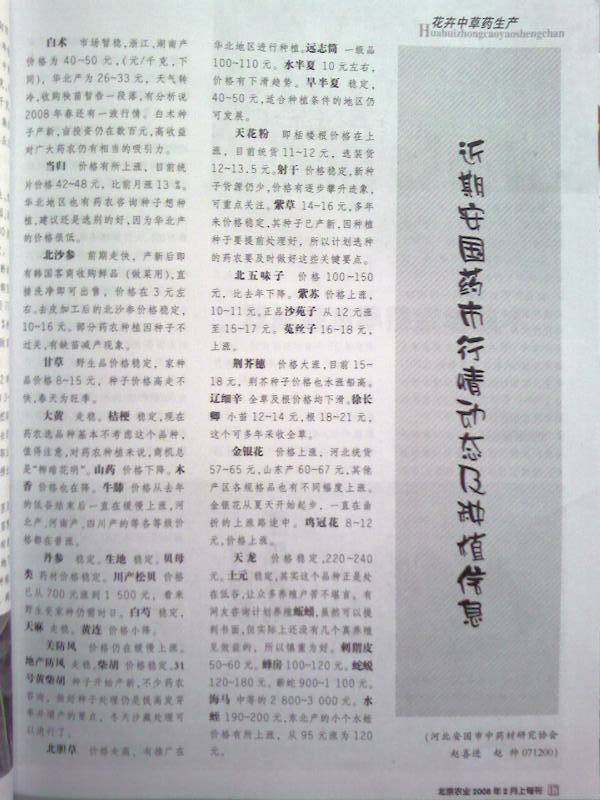 花卉中草药生产
Huahuizhongcaoyaoshengchan
近期安国药市行情动态及种植信息
白术 市场暂稳,浙江,湖南产
价格为 40~50 元,(元/千克,下
同), 华北产为 26~33 元, 天气转
冷,收购秧苗暂告一段落,有分析说
2008 年春还有一波行情。白术种
子产新,亩投资仍在数百元,高收益
对广大药农仍有相当的吸引力。
当归 价格有所上涨, 目前统
片价格 42~48 元, 比前月涨 13 %。
华北地区也有药农咨询种子想种
植,建议还是选别的好,因为华北产
的价格很低。
北沙参 前期走快, 产新后即
有韩国客商收购鲜品 (做菜用),直
接洗净即可出售, 价格在 3 元左
右。去皮加工后的北沙参价格稳定,
10~16 元。部分药农种植因种子不
过关,有缺苗减产现象。
甘草 野生品价格稳定, 家种
品价格 8~15 元, 种子价格高走不
快,春天为旺季。
大黄 走稳。桔梗 稳定,现在
药农选品种基本不考虑这个品种,
值得注意, 对药农种植来说, 商机总
是“柳暗花明”。山药 价格下降。木
香 价格也在降。牛膝 价格从去年
的低谷结束后一直在缓慢上涨, 河
北产,河南产,四川产的等各等级价
格都在普涨。
丹参 稳定。生地 稳定。贝母
类 药材价格稳定。川产松贝 价格
已从 700 元涨到 1 500 元, 看来
野生变家种仍需时日。白芍 稳定,
天麻 走稳。黄连 价格小降。
关防风 价格仍在缓慢上涨。
地产防风 走稳。柴胡 价格稳定。31
号黄柴胡 种子开始产新, 不少药农
咨询, 做好种子处理仍是提高发芽
率并增产的要点, 冬天沙藏处理可
以进行了。
北胆草 价格走高, 有推广在
华北地区进行种植。远志筒 一级品
100~110 元。水半夏 10 元左右,
价格有下滑趋势。旱半夏 稳定,
40~50 元,适合种植条件的地区仍
可发展。
天花粉 即栝楼根价格在上
涨, 目前统货 11~12 元, 选装货
12~13.5 元。射干 价格稳定,新种
子货源仍少,价格有逐步攀升迹象,
可重点关注。紫草 14~16 元,多年
来价格稳定,其种子已产新,因种植
种子要提前处理好, 所以计划选种
的药农要及时做好这些关键要点。
北五味子 价格 100~150
元, 比去年下降。紫苏 价格上涨,
10~11 元。正品沙苑子 从 12 元涨
至 15~17 元。菟丝子 16~18 元,
上涨。
荆芥穗 价格大涨,目前 15~
18 元, 荆芥种子价格也水涨船高。
辽细辛 全草及根价格均下滑。徐长
卿 小苗 12~14 元, 根 18~21 元,
这个可多年采收全草。
金银花 价格上涨, 河北统货
57~65 元, 山东产 60~67 元, 其他
产区各规格品也有不同幅度上涨。
金银花从夏天开始起步, 一直在曲
折的上涨路途中。鸡冠花 8~12
元,价格上涨。
天龙 价格稳定,220~240
元。土元 稳定,其实这个品种正是处
在低谷,让众多养殖户苦不堪言。有
网友咨询计划养殖蚯蚓,虽然可以提
到书面,但实际上还没有几个真养殖
见效益的, 所以慎重为好。刺猬皮
50~60 元。蜂房 100~120 元。蛇蜕
120~180 元。蕲蛇 900~1 100 元。
海马 中等的 2 800~3 000 元。水
蛭 190~200 元,东北产的小个水蛭
价格有所上涨, 从 95 元涨为 120
元。
(河北安国市中药材研究协会
赵喜进 赵帅 071200)
北京农业 2008 年 2 月上旬刊